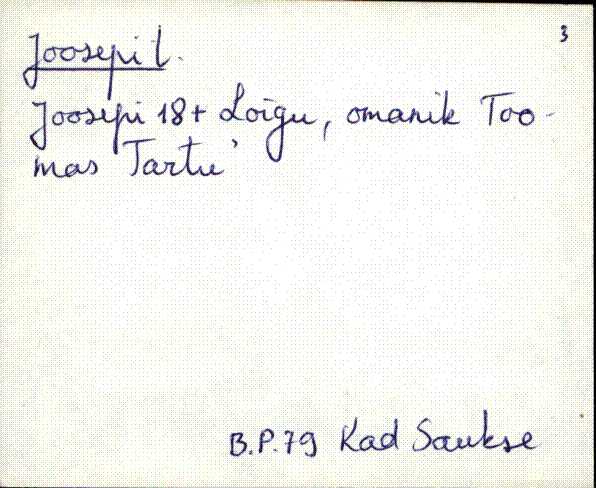 3
Joosepi t.
Joosepi 18+ Loigu, omanik Too-
mas Tartu
B.P.79 Kad Saukse